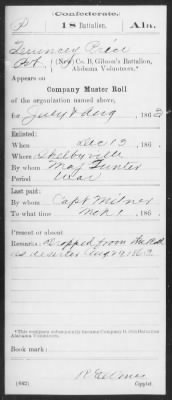 Confederate.
P 18 Battalion. Ala.
Price
Pvt., (New) Co. B, Gibson's Battalion,
Alabama Volunteers.*
Appears on
Company Muster Roll
of the organization named above,
for July & Aug, 1862
Enlisted:
When Dec 13, 186 .
Where Shelbyville
By whom Maj Gunter
Period War
Last paid:
By whom Capt Milner
To what time Mch 1, 186 .
Present or absent
Remarks: Dropped from the Roll
as deserter Aug 19 1862
*This company subsequently became Company
Alabama Volunteers.
Book mark:
(642) Copyist.